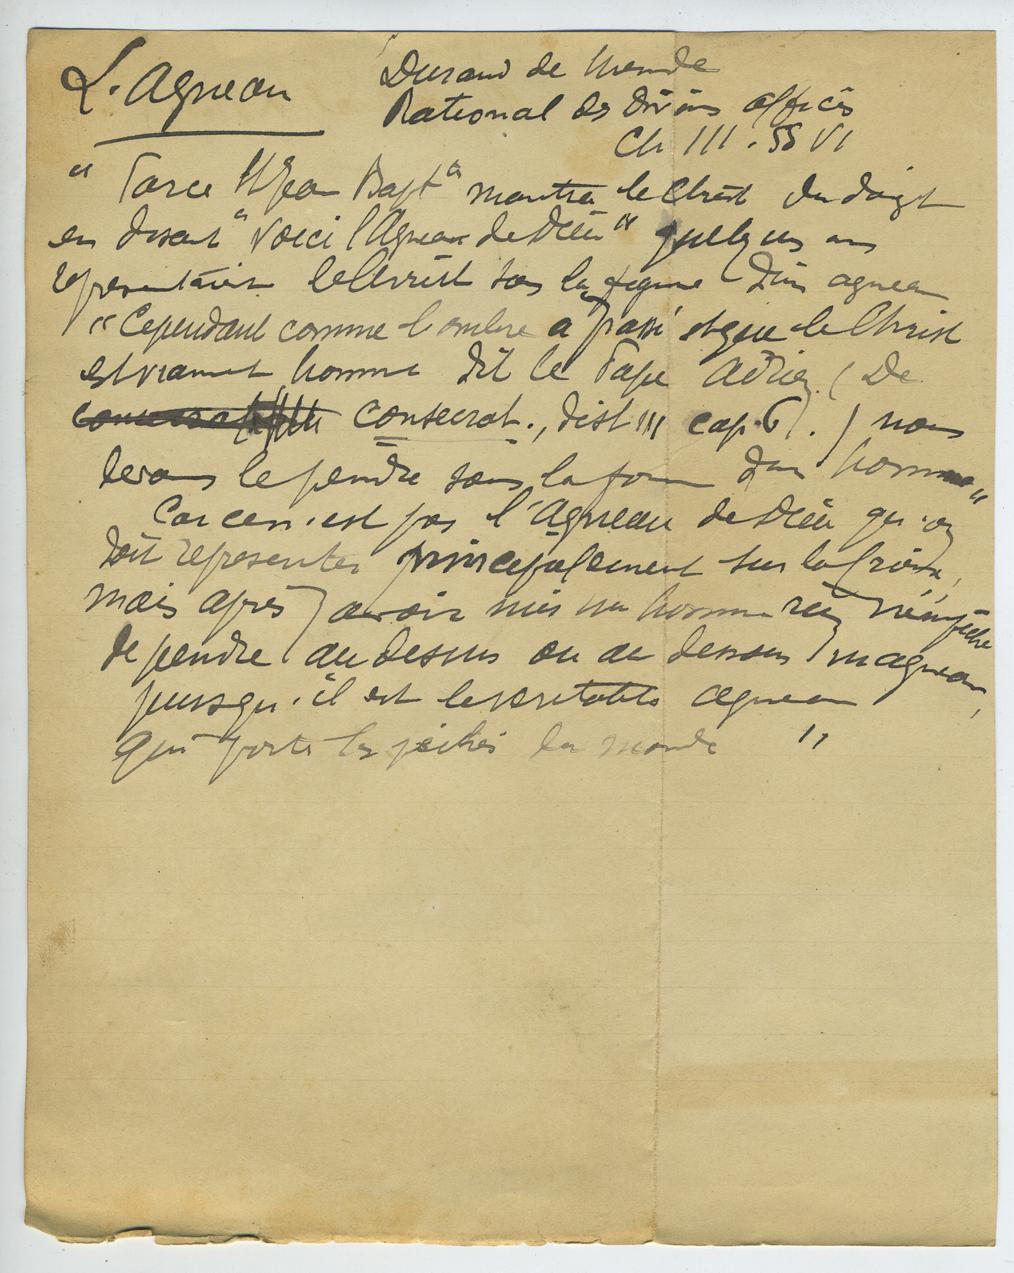 L'Agneau
Durand de Mende
Rational des divins offices
Ch III. §§ VI
"Parce q St Jean Bapte montra le Christ du doigt
en disant "Voici l'Agneau de Dieu" quelques uns
représentaient le Christ sous la figure d'un agneau
"Cependant comme l'ombre a passé et que le Christ
est vraiment homme dit le Pape Adrien (De
consecrat., dist III cap. 6).) nous
devons le peindre sous la forme d'un homme"
Car ce n'est pas l'Agneau de Dieu qu'on
doit représenter principalement sur la Croix,
mais après avoir mis un homme rien n'empêche
de peindre au dessus ou au dessous un agneau,
puisqu'il est le véritable agneau
qui porte les péchés du monde "